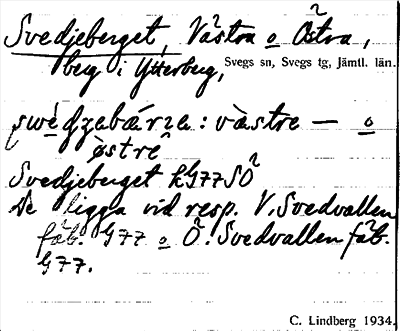 Svedjeberget, Västra o Östra,
berg i Ytterberg, Svegs sn, Svegs tg, Jämtl. län.
: västre — o
östre
Svedjeberget k G77 SÖ
De ligga vid resp. V. Svedvallen
fäb. G77 o Ö. Svedvallen fäb.
G77.
C. Lindberg 1934.